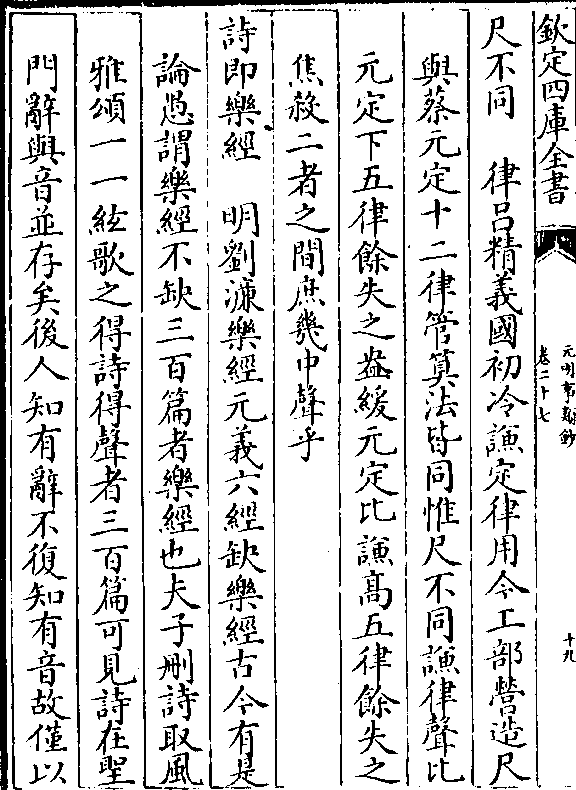 欽定四庫全書
元明事類鈔
卷二十七
十九
尺不同　律呂精義國初冷謙定律用今工部營造尺
與蔡元定十二律管算法皆同惟尺不同謙律聲比
元定下五律餘失之㿽緩元定比謙高五律餘失之
焦殺二者之間庶幾中聲乎
詩即樂經　明劉濂樂經元義六經缺樂經古今有是
論愚謂樂經不缺三百篇者樂經也夫子刪詩取風
雅頌一一絃歌之得詩得聲者三百篇可見詩在聖
門辭與音並存矣後人知有辭不復知有音故僅以